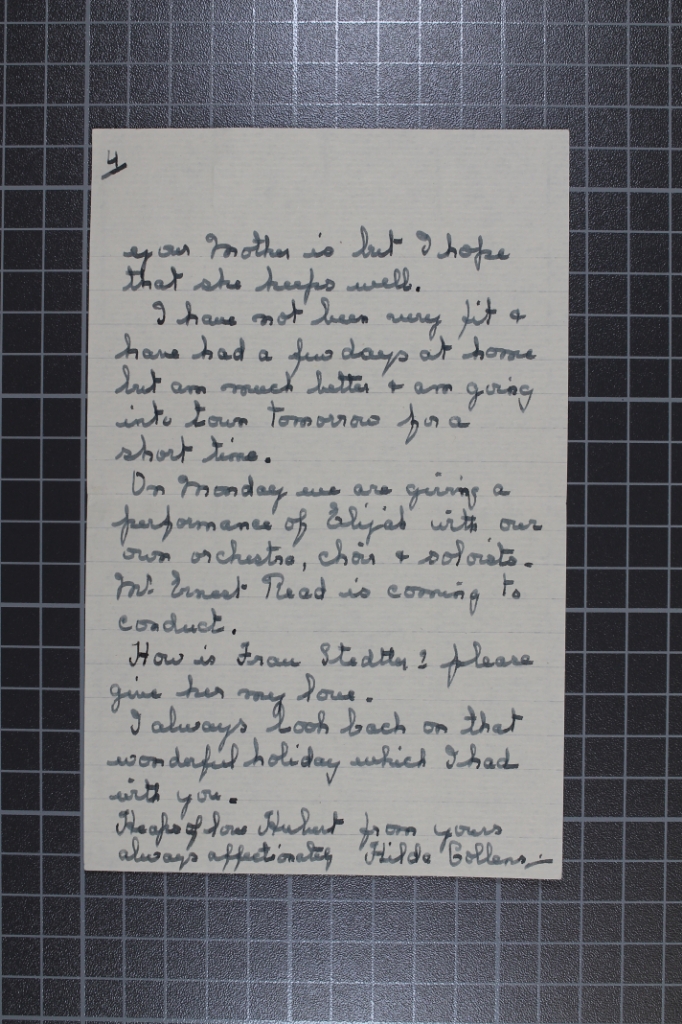 4
your Mother is but I hope
that she keeps well.
I have not been very fit &
have had a few days at home
but am much better & am going
into town tomorrow for a
short time.
On Monday we are giving a
performance of Elijah with our
own orchestra, choir & soloists.
Mr. Ernest Read is coming to
conduct.
How is Frau Stedtler? please
give her my love.
I always look back on that
wonderful holiday which I had
with you.
Heaps of love Hubert from yours
always affectionately Hilda Collens